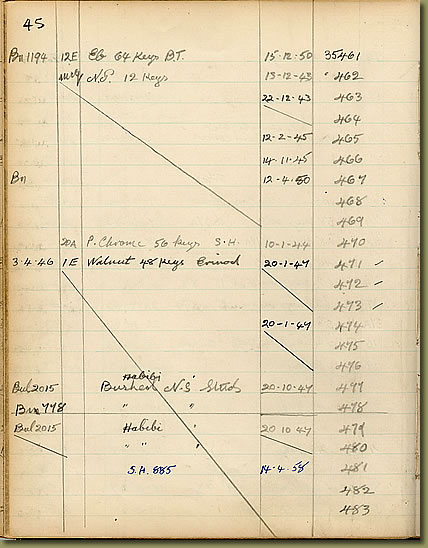 45
Bn 1194 12E Eb 64 Keys B.T. 15-12-50 35461
N.P. 12 Keys 13-12-43 " 462
22-12-43 463
464
12-2-45 465
14-11-45 466
Bn 12-4-50 467
468
469
20A P. Chrome 56 Keys S.H. 10-1-44 470
3.4.46 1E Walnut 48 Keys 20-1-47 471 ✓
472 ✓
473 ✓
20-1-47 474
475
476
Habibi
Bul 2015 N.S. Studs 20-10-47 477
Bnx 778 " " 478
Bul 2015 Habibi ' 20 10 47 479
" " " 480
S.H. 885 14-4-55 481
482
483